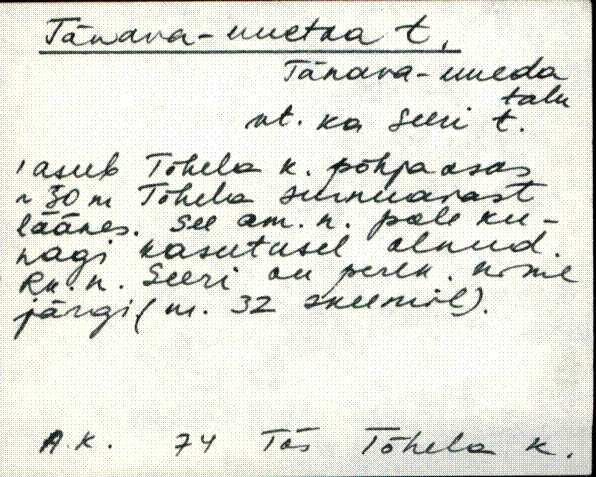 Tänava-uuetaa t.
Tänava-uueda
talu
vt. ka Seeri t.
asub Tõhela k. põhjaosas
~ 30 m Tõhela surnuaiast
läänes. See am. n. pole ku-
nagi kasutusel olnud.
Rn. n. Seeri on perek. nime
järgi (nr. 32 skeemil).
A.K. 74 Tõs Tõhela k.